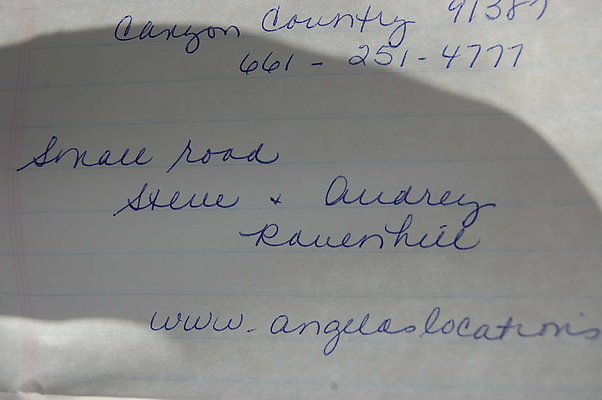 Canyon Country 91387
661-251-4777
Small road
Steve & Audrey
Ravenhill
www.angelaslocations